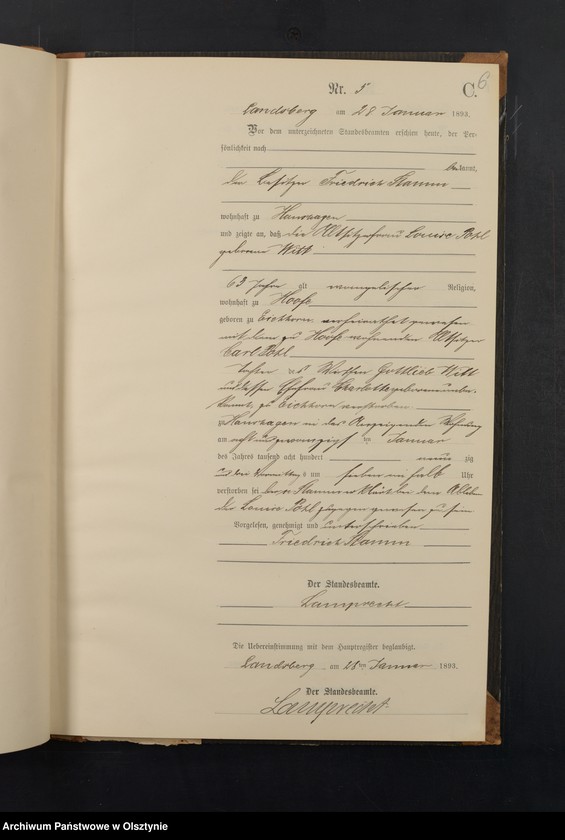 6
Nr. 5
C.
Landsberg am 28 Januar 1893.
Vor dem unterzeichneten Standesbeamten erschien heute, der Per-
sönlichkeit nach
kannt,
der Besitzer Friedrich Stamm
wohnhaft zu Hanshagen
und zeigte an, daß die Altsitzerfrau Louise Pohl
geborene Witt
63 Jahre alt evangelischer Religion,
wohnhaft zu Hoofe
geboren zu Eichhorn verheirathet gewesen
mit dem zu Hoofe wohnenden Altsitzer
Carl Pohl
Tochter des Gottlieb Witt
und dessen Ehefrau Charlotte geborene unbe-
kannt, zu Eichhorn verstorben
zu Hanshagen in des Anzeigenden Wohnung
am acht und zwanzigsten Januar
des Jahres tausend acht hundert neun zig
und drei Vormittags um sieben ein halb Uhr
verstorben sei
der Louise Pohl zugegen gewesen zu sein
Vorgelesen, genehmigt und unterschrieben
Friedrich Stamm
Der Standesbeamte.
Lamprecht
Die Uebereinstimmung mit dem Hauptregister beglaubigt.
Landsberg am 28ten Januar 1893.
Der Standesbeamte.
Lamprecht
Archiwum Państwowe w Olsztynie